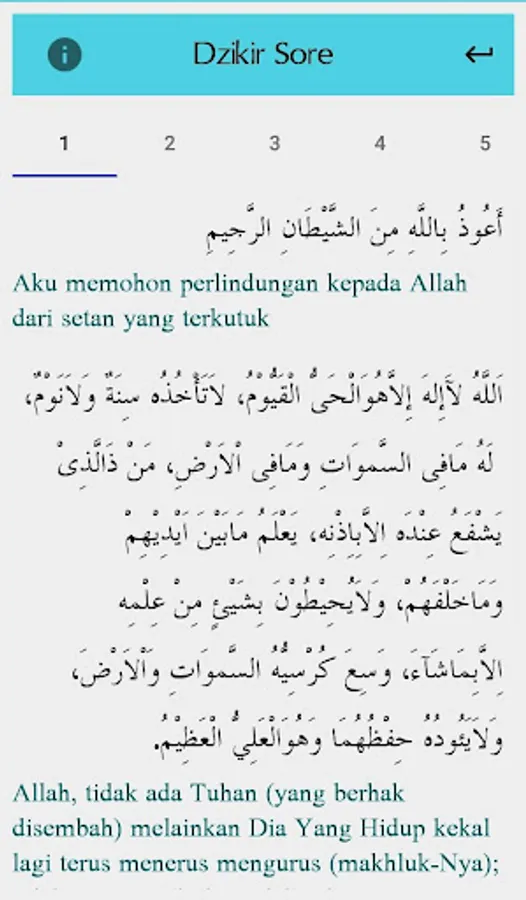 Dzikir Sore
1 2 3 4 5
أَعُوذُ بِاللَّهِ مِنَ الشَّيْطَانِ الرَّجِيمِ
Aku memohon perlindungan kepada Allah
dari setan yang terkutuk
اَللَّهُ لَآإِلهَ إِلاَّهُوَالْحَىُّ الْقَيُّوْمُ، لاَتَأْخُذُه سِنَةٌ وَلَانَوْمٌ،
لَهُ مَافِى السَّموَاتِ وَمَافِى اْلاَرْضِ، مَنْ ذَالَّذِىْ
يَشْفَعُ عِنْدَه اِلاَّبِاِذْنِه، يَعْلَمُ مَابَيْنَ اَيْدِيْهِمْ
وَمَاخَلْفَهُمْ، وَلاَيُحِيْطُوْنَ بِشَيْئٍ مِنْ عِلْمِه
اِلاَّبِمَاشَآءَ، وَسِعَ كُرْسِيُّهُ السَّموَاتِ وَاْلاَرْضَ،
وَلاَيَئُودُهُ حِفْظُهُمَا وَهُوَالْعَلِيُّ الْعَظِيْمُ.
Allah, tidak ada Tuhan (yang berhak
disembah) melainkan Dia Yang Hidup kekal
lagi terus menerus mengurus (makhluk-Nya);